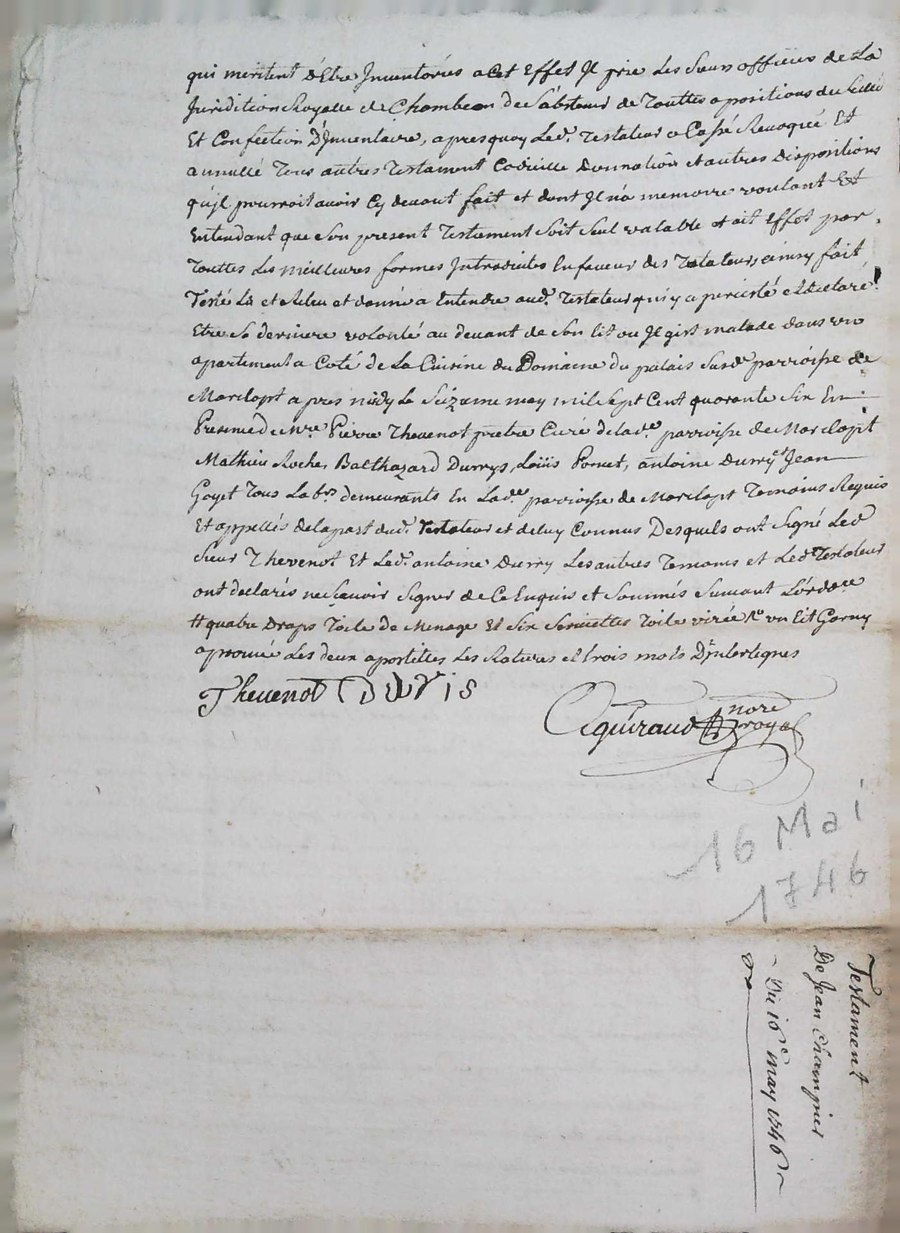 qui meritent d'Etre Inventoriés a Cet Effet Il prie Les Sieurs officiers de La
Juridition Royalle de Chambeon de S'abstenir de Touttes opositions de scellé
Et Confection D'Inventaire, apresquoy Led. Testateur a Cassé Revoqué Et
annullé Tous autres Testament Codicille Donnation et autres Dispositions
qu'jl pourroit avoir Cy devant fait et dont Il n'a memoire voulant Et
Entendant que Son present Testament Soit Seul valable et ait Effet par
Touttes Les meilleures formes Introduites En faveur des Testateurs, ainsy fait
Testé Lû et Relu et donné a Entendre aud. Testateur qui y a percisté et declaré
Etre Sa derniere volonté au devant de Son lit ou Il gist malade dans un
apartement a Coté de La Cuisine du Domaine du palais Susde parroisse de
Marclopt apres midy le Seizieme may mil Sept Cent quarante Six En
Presence de mre Pierre Thevenot pretre Curé de lade parroisse de Marclopt
Mathieu Roche, Balthazard Durrys, Loüis Ponet, antoine Durry et Jean
Goyet Tous Labrs demeurants En Lade parroisse de Marclopt Temoins Requis
Et appellés de la part dud. Testateur et de luy Connus Desquels ont Signé Led
Sieur Thevenot Et Led. antoine Durry Les autres Temoins et Led. Testateur
ont declarés ne Sçavoir Signer de Ce Enquis et Sommés Suivant L'ordce
# quatre Draps Toile de menage Et Six Serviettes Toile virée # un Lit Garny
aprouvé Les deux apostilles Les Ratures et trois mots D'Interlignes
Thevenot C DURIS
Aguiraud nore
royal
16 Mai
1746
Testament
De Jean Champier
Du 16e may 1746